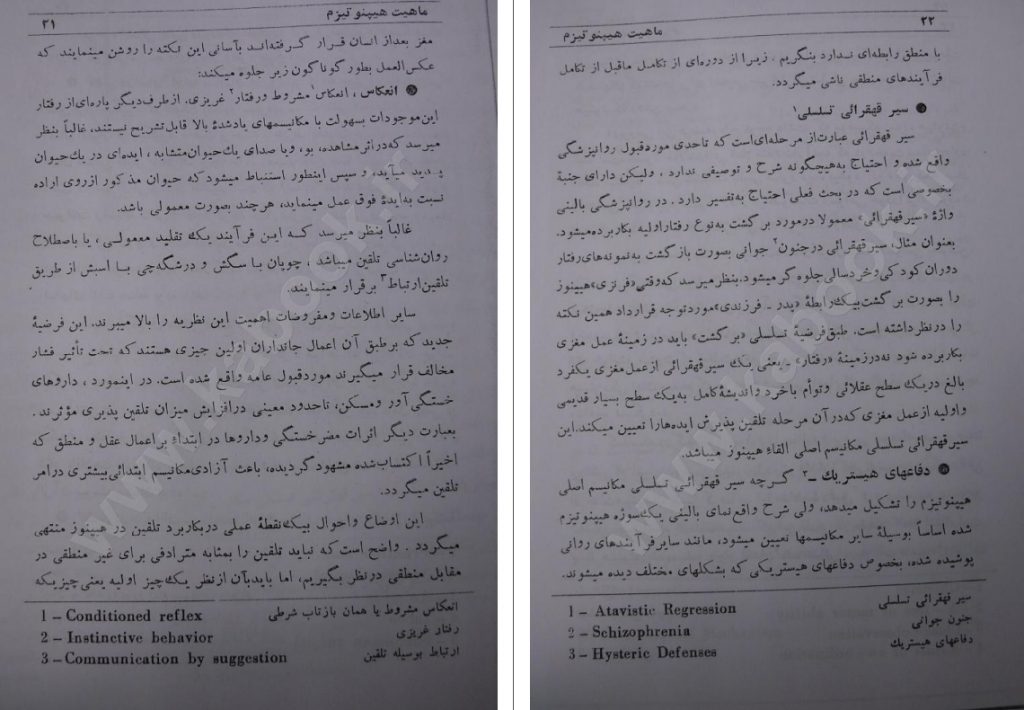 ماهیت هیپنوتیزم ۲۱
مغز بعداز انسان قرار گرفته‌اند بآسانی این نکته را روشن مینمایند که
عکس‌العمل بطور گوناگون زیر جلوه میکند:
● انعکاس ، انعکاس۱ مشروط ورفتار۲ غریزی. ازطرف‌دیگر پاره‌ای‌از رفتار
این‌موجودات بسهولت با مکانیسمهای یادشدهٔ بالا قابل‌تشریح نیستند، غالباً بنظر
میرسد که‌دراثر مشاهده، بو، ویا صدای یك‌حیوان‌متشابه ، ایده‌ای در یك‌حیوان
پدید میآید، و سپس اینطور استنباط میشود که حیوان مذکور ازروی اراده
نسبت به‌ایدهٔ فوق عمل مینماید، هرچند بصورت معمولی باشد.
غالباً بنظر میرسد که این فرآیند یك تقلید معمولی ، یا باصطلاح
روان‌شناسی تلقین میباشد ، چوپان با سگش و درشگه‌چی با اسبش از طریق
تلقین‌ارتباط۳ برقرار مینمایند.
سایر اطلاعات ومفروضات اهمیت این نظریه را بالا میبرند. این فرضیهٔ
جدید که برطبق آن اعمال جانداران اولین چیزی هستند که تحت تأثیر فشار
مخالف قرار میگیرند موردقبول عامه واقع شده است. در اینمورد ، داروهای
خستگی‌آور ومسکن، تاحدود معینی درافزایش میزان تلقین پذیری مؤثرند .
بعبارت دیگر اثرات مضر خستگی وداروها در ابتداء براعمال عقل و منطق که
اخیراً اکتساب‌شده مشهود گردیده، باعث آزادی‌مکانیسم ابتدائی‌بیشتری درامر
تلقین میگردد.
این اوضاع واحوال بیك‌نقطهٔ عملی درکاربرد تلقین در هیپنوز منتهی
میگردد . واضح است که نباید تلقین را بمثابه مترادفی برای غیر منطقی در
مقابل منطقی درنظر بگیریم، اما بایدبآن ازنظر یك‌چیز اولیه یعنی چیزیکه
1 – Conditioned reflex انعکاس مشروط یا همان بازتاب شرطی
2 – Instinctive behavior رفتار غریزی
3 – Communication by suggestion ارتباط بوسیله تلقین
۲۲ ماهیت هیپنوتیزم
با منطق رابطه‌ای ندارد بنگریم . زیرا از دوره‌ای از تکامل ماقبل از تکامل
فرآیندهای منطقی ناشی میگردد.
● سیر قهقرائی تسلسلی۱
سیر قهقرائی عبارت‌از مرحله‌ای‌است که تاحدی موردقبول روانپزشگی
واقع شده و احتیاج به‌هیچگونه شرح و توصیفی ندارد ، ولیکن دارای جنبهٔ
بخصوصی است که در بحث فعلی احتیاج به‌تفسیر دارد . در روانپزشگی بالینی
واژهٔ «سیرقهقرائی» معمولا درمورد برگشت به‌نوع رفتاراولیه بکاربرده‌میشود.
بعنوان مثال، سیرقهقرائی درجنون۲ جوانی بصورت بازگشت به‌نمونه‌های‌رفتار
دوران کودکی‌وخردسالی جلوه‌گرمیشود.بنظرمیرسد که‌وقتی«فرنزی»هیپنوز
را بصورت برگشت‌بیك‌رابطهٔ «پدر ـ فرزندی»موردتوجه قرارداد همین نکته
را درنظرداشته است. طبق‌فرضیهٔ تسلسلی «برگشت» باید در زمینهٔ عمل مغزی
بکاربرده شود نه‌درزمینهٔ «رفتار» ـ یعنی یك سیرقهقرائی ازعمل‌مغزی یکفرد
بالغ دریك سطح عقلائی وتوأم باخرد واندیشهٔ‌کامل به‌یك سطح بسیار قدیمی
واولیه ازعمل مغزی که‌درآن مرحله تلقین پذیرش ایده‌هارا تعیین میکند.این
سیرقهقرائی تسلسلی مکانیسم اصلی القاء هیپنوز میباشد.
● دفاعهای هیستریك ـ۳ گرچه سیر قهقرائی تسلسلی مکانیسم اصلی
هیپنوتیزم را تشکیل میدهد، ولی شرح واقع‌نمای بالینی یك‌سوژه هیپنوتیزم
شده اساساً بوسیلهٔ سایر مکانیسمها تعیین میشود، مانند سایرفرآیندهای روانی
پوشیده شده، بخصوص دفاعهای هیستریکی که بشکلهای مختلف دیده میشوند.
1 – Atavistic Regression سیر قهقرائی تسلسلی
2 – Schizophrenia جنون جوانی
3 – Hysteric Defenses دفاعهای هیستریك